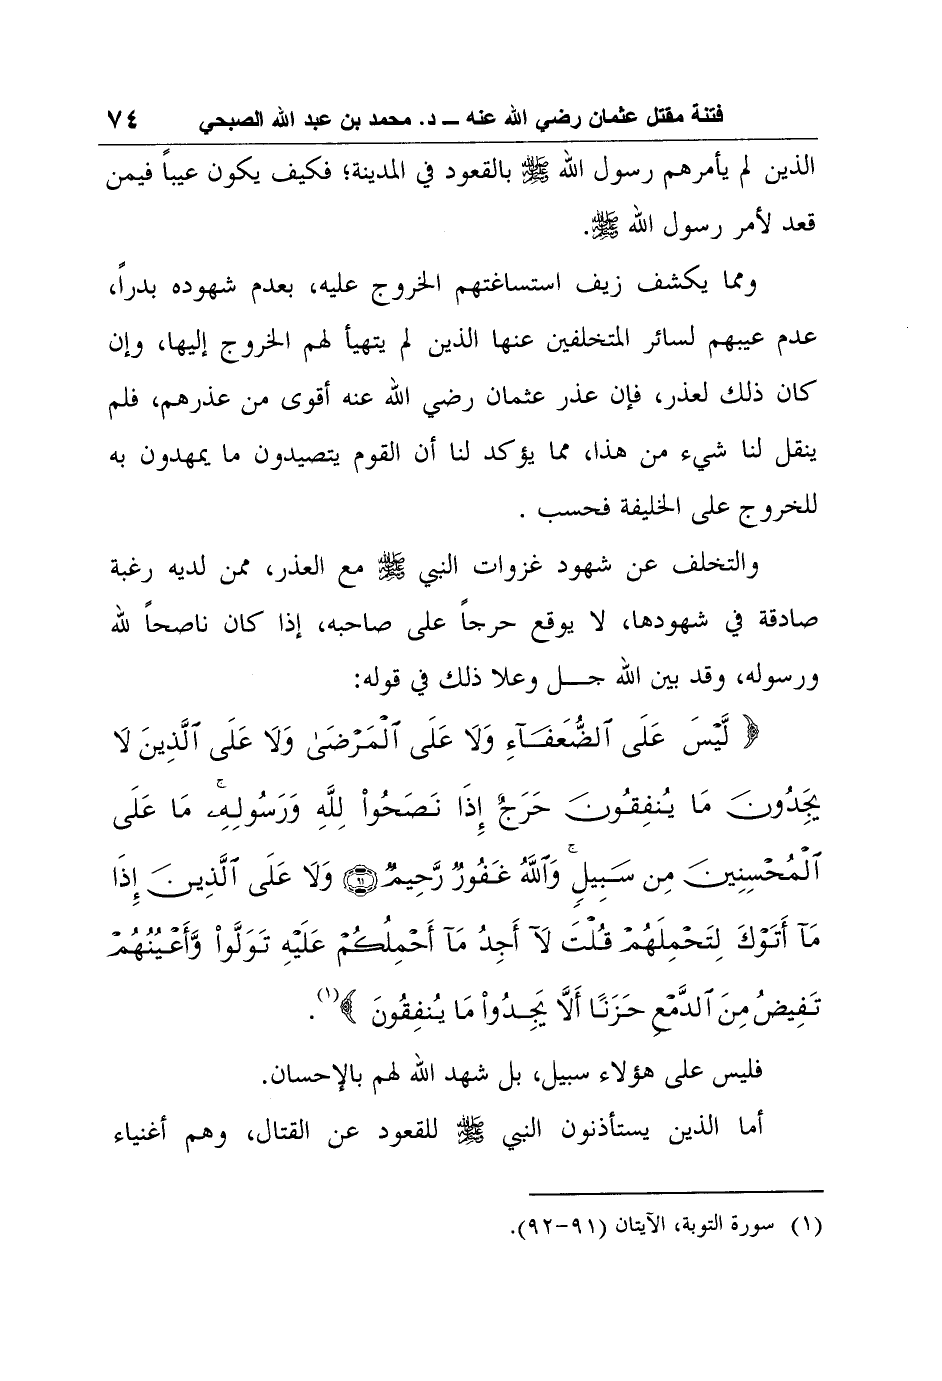 فتنة مقتل عثمان رضي الله عنه ــ د. محمد بن عبد الله الصبحي ٧٤
الذين لم يأمرهم رسول الله ﷺ بالقعود في المدينة؛ فكيف يكون عيباً فيمن
قعد لأمر رسول الله ﷺ.
ومما يكشف زيف استساغتهم الخروج عليه، بعدم شهوده بدراً،
عدم عيبهم لسائر المتخلفين عنها الذين لم يتهيأ لهم الخروج إليها، وإن
كان ذلك لعذر، فإن عذر عثمان رضي الله عنه أقوى من عذرهم، فلم
ينقل لنا شيء من هذا، مما يؤكد لنا أن القوم يتصيدون ما يمهدون به
للخروج على الخليفة فحسب .
والتخلف عن شهود غزوات النبي ﷺ مع العذر، ممن لديه رغبة
صادقة في شهودها، لا يوقع حرجاً على صاحبه، إذا كان ناصحاً لله
ورسوله، وقد بين الله جـــل وعلا ذلك في قوله:
﴿ لَّيْسَ عَلَى ٱلضُّعَفَآءِ وَلَا عَلَى ٱلْمَرْضَىٰ وَلَا عَلَى ٱلَّذِينَ لَا
يَجِدُونَ مَا يُنفِقُونَ حَرَجٌ إِذَا نَصَحُوا۟ لِلَّهِ وَرَسُولِهِۦ ۚ مَا عَلَى
ٱلْمُحْسِنِينَ مِن سَبِيلٍ ۚ وَٱللَّهُ غَفُورٌ رَّحِيمٌ ٩١ وَلَا عَلَى ٱلَّذِينَ إِذَا
مَآ أَتَوْكَ لِتَحْمِلَهُمْ قُلْتَ لَآ أَجِدُ مَآ أَحْمِلُكُمْ عَلَيْهِ تَوَلَّوا۟ وَّأَعْيُنُهُمْ
تَفِيضُ مِنَ ٱلدَّمْعِ حَزَنًا أَلَّا يَجِدُوا۟ مَا يُنفِقُونَ ﴾(١).
فليس على هؤلاء سبيل، بل شهد الله لهم بالإحسان.
أما الذين يستأذنون النبي ﷺ للقعود عن القتال، وهم أغنياء
(١) سورة التوبة، الآيتان (٩١-٩٢).